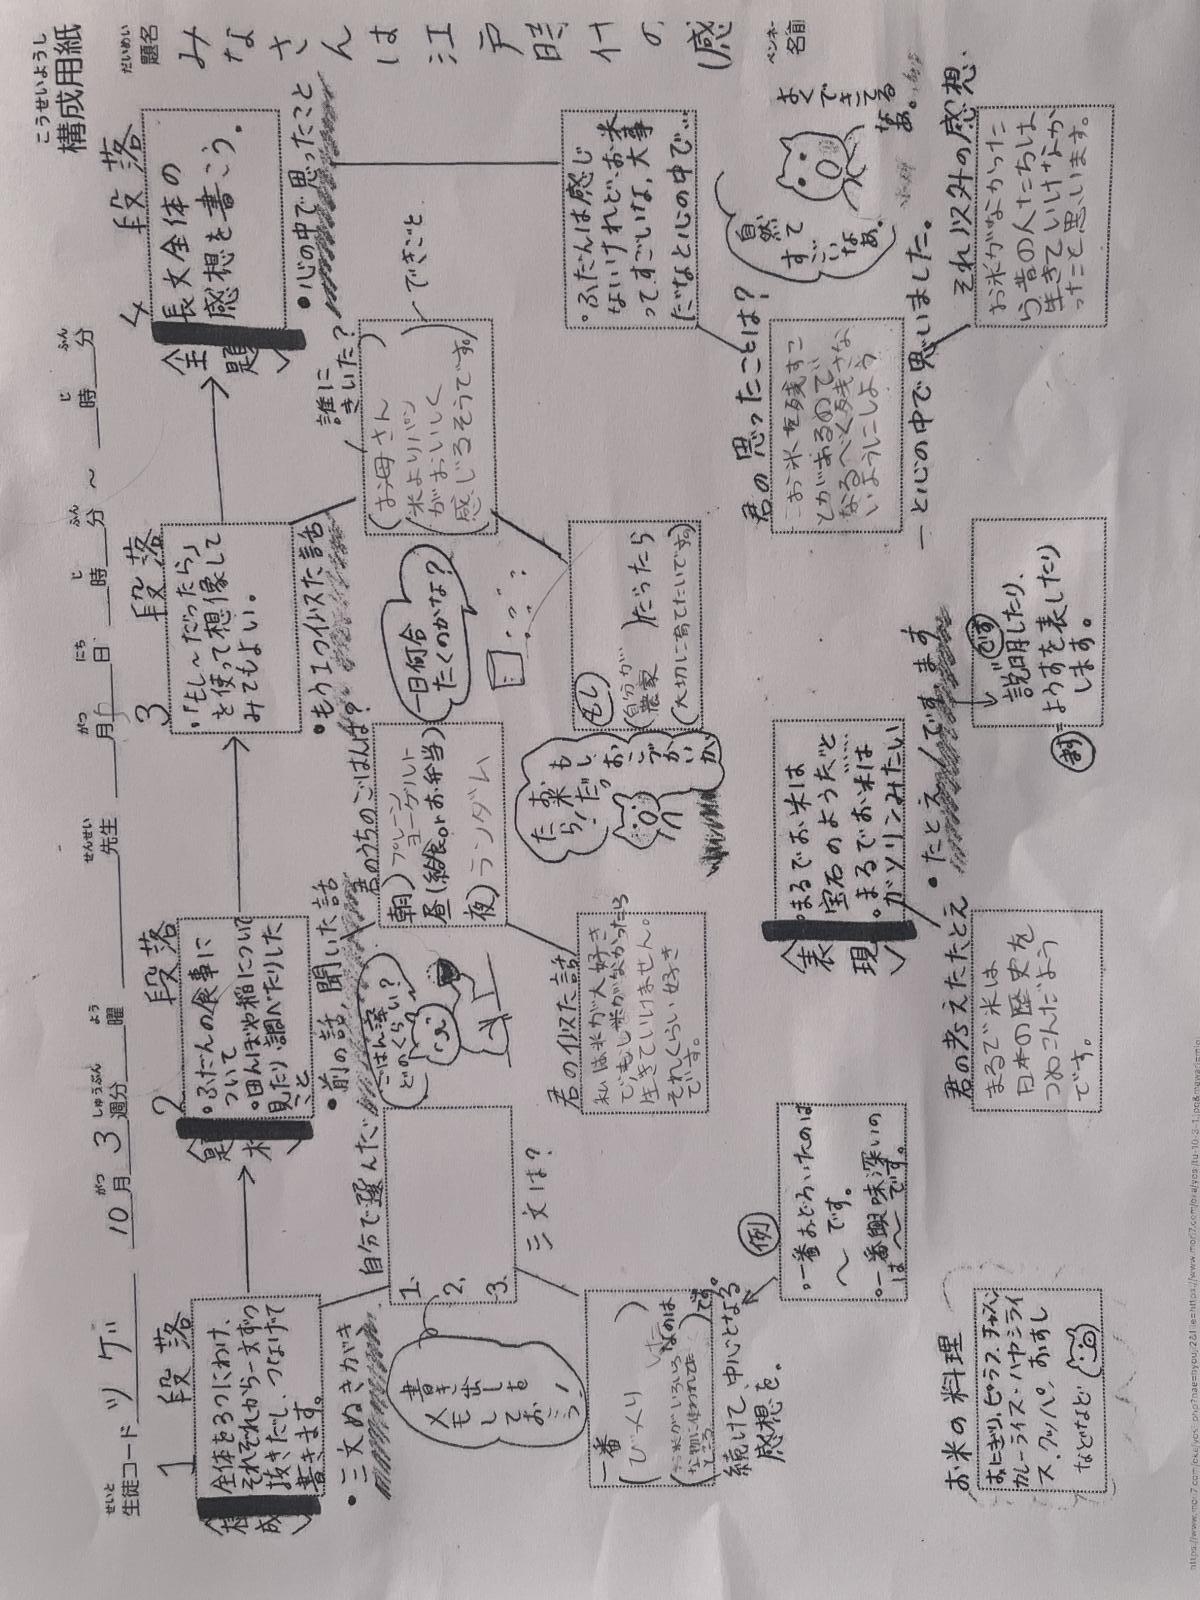 こうせいようし
構成用紙
だいめい
題名
みなさんは江戸時代の(感
ペンネーム
名前
せいと
生徒コード ツゲリ
10月3週分
がつ
しゅうぶん
よう
曜
せんせい
先生
がつ
月
にち
日
じ
時
ふん
分
～
じ
時
ふん
分
1段落
〈構成〉
全体を3つにわけ、
それぞれから一文ずつ
抜きだし、つなげて
書きます。
・三文ぬきがき
自分で選んだ
1.
2.
3.
三文は?
書き出しも
メモして
おこう!
一番
(びっくり した)
(お米がいろいろ
な物に使われてた
ところ
なのは
)です。
続けて、中心となる
感想を。
例
・一番おどろいたのは
～です。
・一番興味深いの
は～です。
お米の料理
おにぎり、ピラフ、チャーハン
カレーライス・ハヤシライ
ス、クッパ、おすし
などなど
2段落
〈題材〉
・ふだんの食事に
ついて
・田んぼや稲について
見たり調べたりした
こと
・前の話、聞いた話
君のうちのごはんは?
朝)プレーン
ヨーグルト
昼(給食orお弁当)
夜)ランダム
ごはん率
どのくらい?
君の似た話
私は米が大好き
でもし米がなかったら
生きていけません。
それくらい好き
です。
もし、おこづかいが
お米だっ
たら!
〈表現〉
・まるでお米は
宝石のようだ"と
・まるでお米は
ガソリンみたい
・たとえ
君の考えたたとえ
まるで米は
日本の歴史を
つめこんだよう
です。
3段落
・「もし～だったら」
と使って想像して
みてもよい。
・もう1つ似た話
誰に
きいた?
(お母さん)
(米よりパン
がおいしく
感じるそうです。)
できごと
一日何合
たくのかな?
もし
(自分が
農家)だったら
(大切に育てたいです。)
です
ます
説明したり、
ようすを表したり
します。
4段落
〈主題〉
長文全体の
感想を書こう。
・心の中で思ったこと
・ふだんは感じ
ないけれど、お米
って、すごいな、大事
だなと心の中で…
君の思ったことは?
お米を残すこ
とがあるので
なるべく残さな
いようにしよう
―と心の中で思いました。
自然って
すごい
なあ。
よく
できてる
なあ。
それ以外の感想
お米がなかった
ら昔の人たちは
生きていけなか
ったと思います。